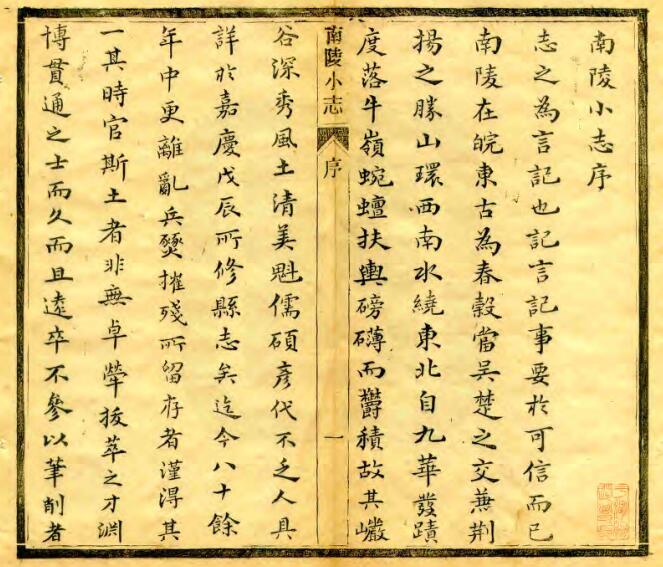 南陵小志序
志之為言記也記言記事要於可信而已
南陵在皖東古為春穀當吴楚之交兼荆
揚之勝山環西南水繞東北自九華發蹟
度落牛嶺蜿蟺扶輿磅礴而欝積故其巘
南陵小志
序
一
谷深秀風土清美魁儒碩彥代不乏人具
詳於嘉慶戊辰所修縣志矣迄今八十餘
年中更離亂兵燹摧殘所留存者謹得其
一其時官斯土者非無卓犖拔萃之才淵
博貫通之士而久而且遠卒不參以筆削者